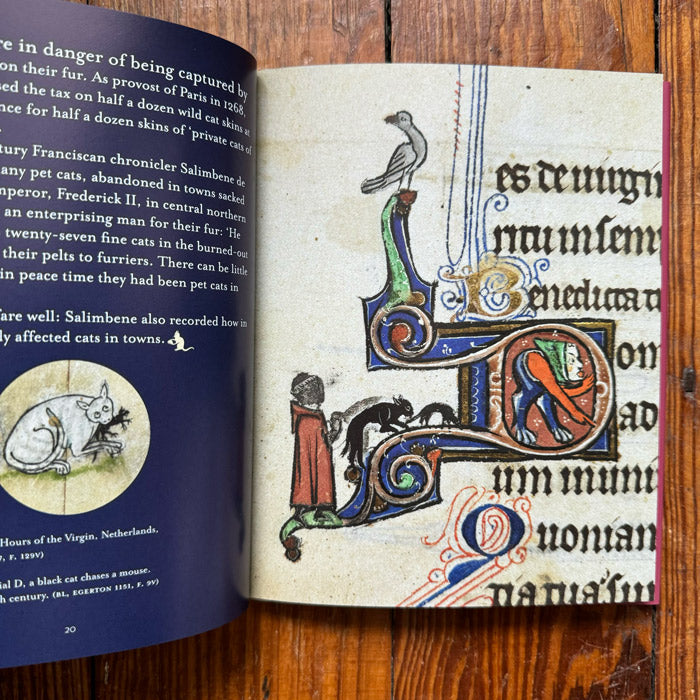 re in danger of being captured by
on their fur. As provost of Paris in 1268,
sed the tax on half a dozen wild cat skins at
nce for half a dozen skins of ‘private cats of
tury Franciscan chronicler Salimbene de
any pet cats, abandoned in towns sacked
mperor, Frederick II, in central northern
an enterprising man for their fur: ‘He
twenty-seven fine cats in the burned-out
their pelts to furriers. There can be little
in peace time they had been pet cats in
fare well: Salimbene also recorded how in
ly affected cats in towns.
Hours of the Virgin, Netherlands,
7, F. 129V)
ial D, a black cat chases a mouse.
h century. (BL, EGERTON 1151, F. 9V)
20
es de uirgin
ritu in sem
Benedicta
om
ad
um mun
Quonian
tia tua su